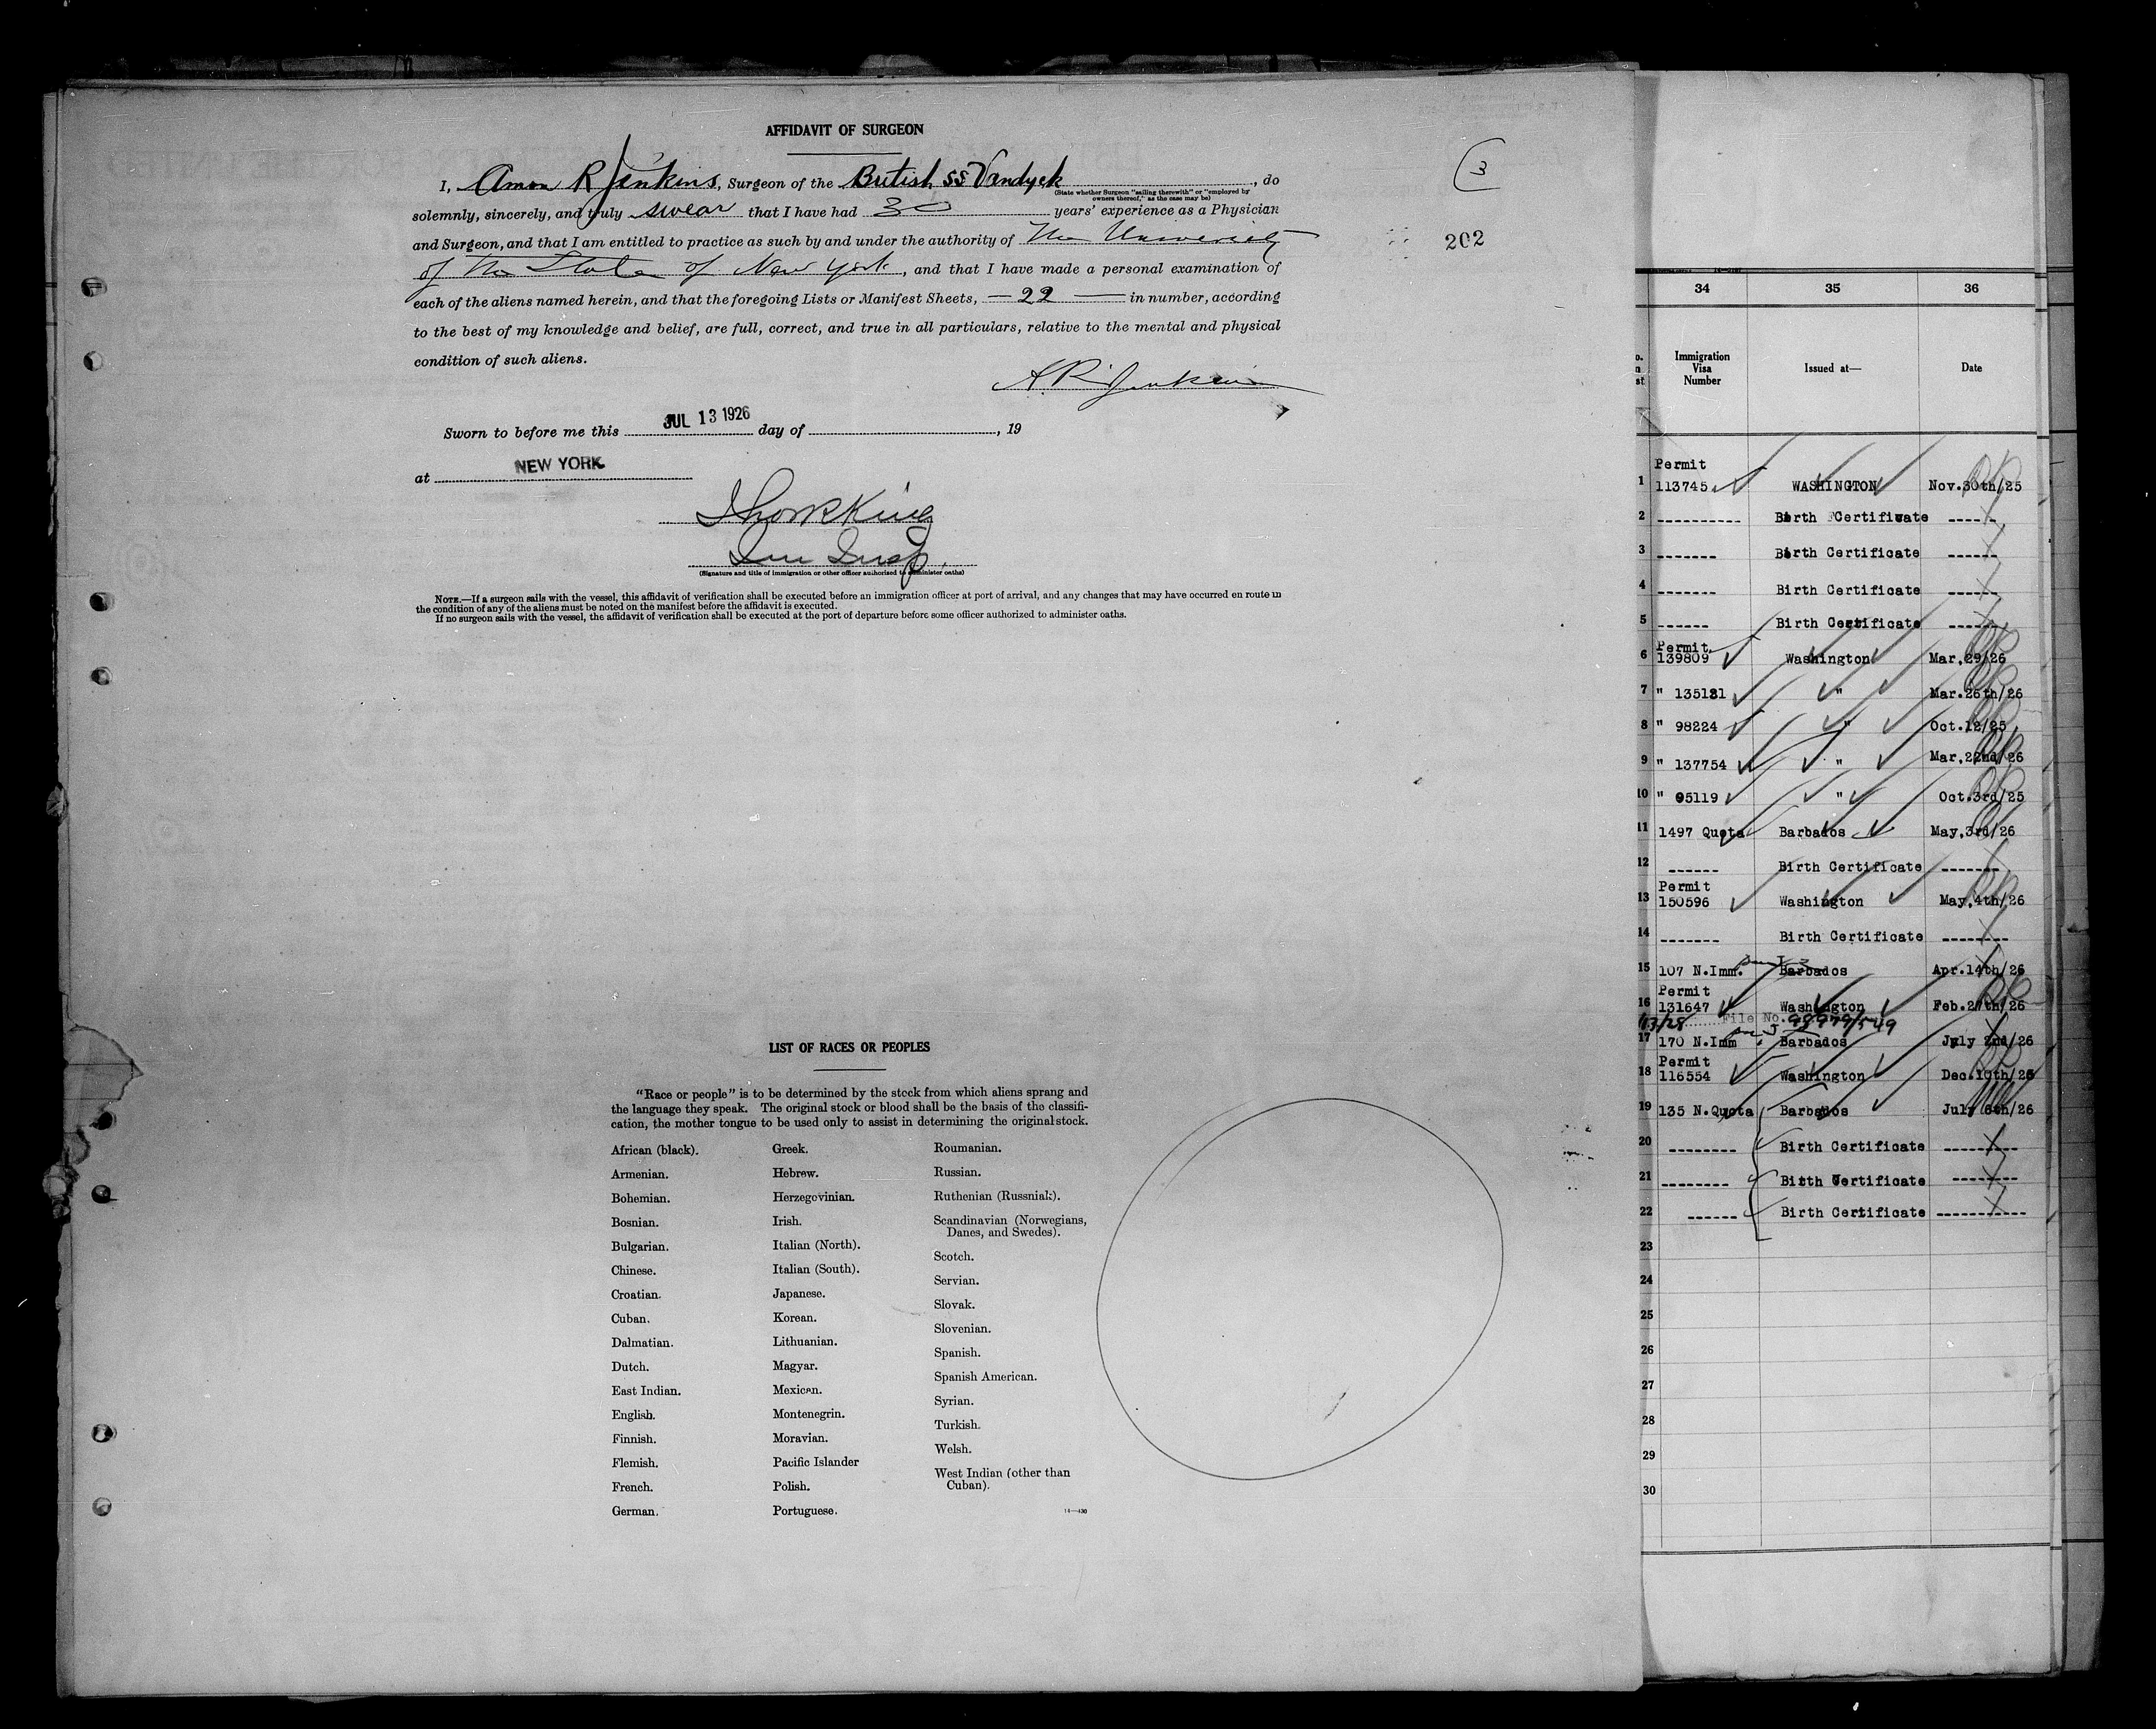 AFFIDAVIT OF SURGEON
I, Amon R Jenkins, Surgeon of the British SS Vandyck, do
(State whether Surgeon "sailing therewith" or "employed by
owners thereof," as the case may be)
solemnly, sincerely, and truly swear that I have had 30 years' experience as a Physician
and Surgeon, and that I am entitled to practice as such by and under the authority of The University
of the State of New York, and that I have made a personal examination of
each of the aliens named herein, and that the foregoing Lists or Manifest Sheets, — 22 — in number, according
to the best of my knowledge and belief, are full, correct, and true in all particulars, relative to the mental and physical
condition of such aliens.
A. R. Jenkins
Sworn to before me this JUL 13 1926 day of , 19
at NEW YORK
King
Imm Insp.
(Signature and title of immigration or other officer authorized to administer oaths)
NOTE.—If a surgeon sails with the vessel, this affidavit of verification shall be executed before an immigration officer at port of arrival, and any changes that may have occurred en route in
the condition of any of the aliens must be noted on the manifest before the affidavit is executed.
If no surgeon sails with the vessel, the affidavit of verification shall be executed at the port of departure before some officer authorized to administer oaths.
3
202
LIST OF RACES OR PEOPLES
"Race or people" is to be determined by the stock from which aliens sprang and
the language they speak. The original stock or blood shall be the basis of the classifi-
cation, the mother tongue to be used only to assist in determining the original stock.
African (black).
Armenian.
Bohemian.
Bosnian.
Bulgarian.
Chinese.
Croatian.
Cuban.
Dalmatian.
Dutch.
East Indian.
English.
Finnish.
Flemish.
French.
German.
Greek.
Hebrew.
Herzegovinian.
Irish.
Italian (North).
Italian (South).
Japanese.
Korean.
Lithuanian.
Magyar.
Mexican.
Montenegrin.
Moravian.
Pacific Islander
Polish.
Portuguese.
Roumanian.
Russian.
Ruthenian (Russniak).
Scandinavian (Norwegians,
Danes, and Swedes).
Scotch.
Servian.
Slovak.
Slovenian.
Spanish.
Spanish American.
Syrian.
Turkish.
Welsh.
West Indian (other than
Cuban).
14—430
34 35 36
Immigration
Visa
Number
Issued at—
Date
Permit
1 113745 WASHINGTON Nov.30th/25
2 ---------- Birth Certificate ------
3 ------- Birth Certificate ------
4 ------- Birth Certificate ------
5 ------ Birth Certificate ------
Permit
6 139809 Washington Mar,29/26
7 " 135131 " Mar.26th/26
8 " 98224 " Oct.12/25
9 " 137754 " Mar,22nd/26
10 " 95119 " Oct.3rd/25
11 1497 Quota Barbados May,3rd/26
12 ------ Birth Certificate -------
Permit
13 150596 Washington May,4th/26
14 ------- Birth Certificate --------
15 107 N.Imm. Barbados Apr.14th/26
Permit
16 131647 Washington Feb.27th/26
File No. 98979/549
17 170 N.Imm Barbados July 2nd/26
Permit
18 116554 Washington Dec.10th/25
19 135 N.Quota Barbados July 6th/26
20 -------- Birth Certificate ---------
21 -------- Birth Certificate --------
22 ------ Birth Certificate -----------
23
24
25
26
27
28
29
30